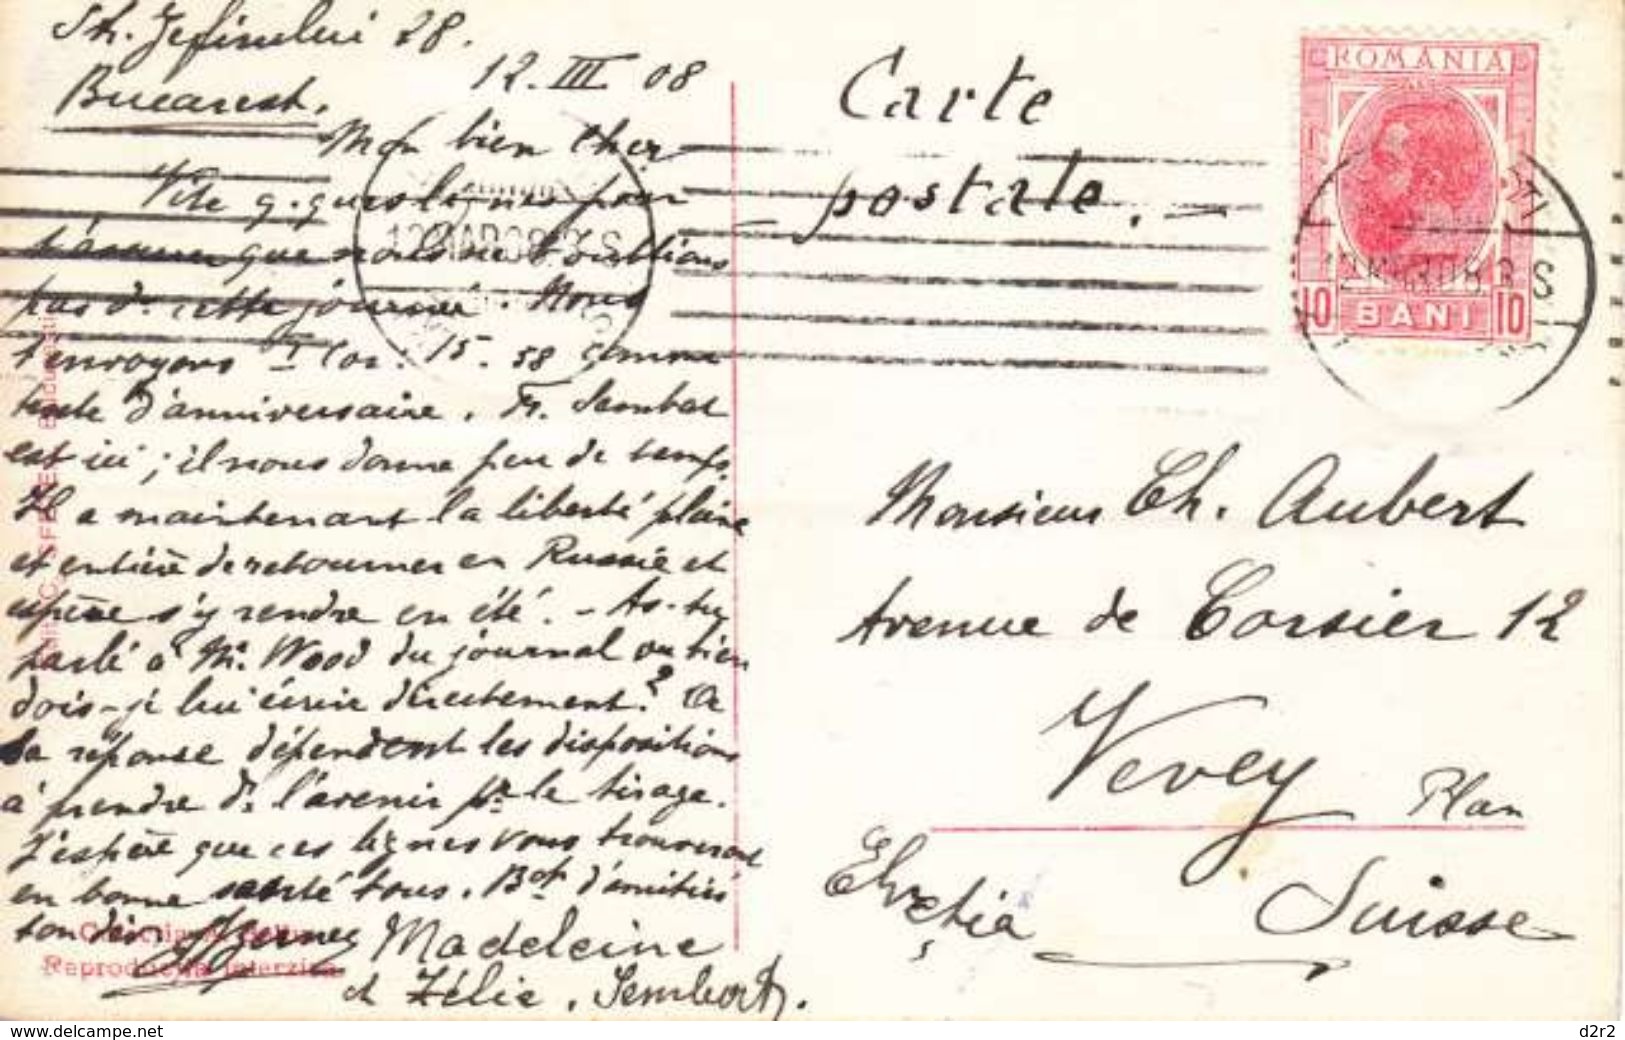 28.
Bucarest.
12.III 08
Mon bien cher
Vite q.ques lignes pour
t'assurer que nous ne t'oublions
pas de cette journée. Nous
t'envoyons I Cor. 15.58 comme
texte d'anniversaire. Fr. Sembat
est ici; il nous donne peu de temps.
Il a maintenant la liberté pleine
et entière de retourner en Russie et
espère s'y rendre en été. - As-tu
parlé à Mr. Wood du journal ou bien
dois-je lui écrire directement? De
sa réponse dépendent les dispositions
à prendre ds l'avenir pr le tirage.
J'espère que ces lignes vous trouveront
en bonne santé tous. Bct d'amitiés
ton
Madeleine
et Zélie.
Reproducția interzisă
Carte
postale.
ROMANIA
10 BANI 10
12 MAR 08 8 S
12 MAR 08 8 S
Monsieur Ch. Aubert
Avenue de Corsier 12
Vevey Plan
Elveția
Suisse
www.delcampe.net
d2r2